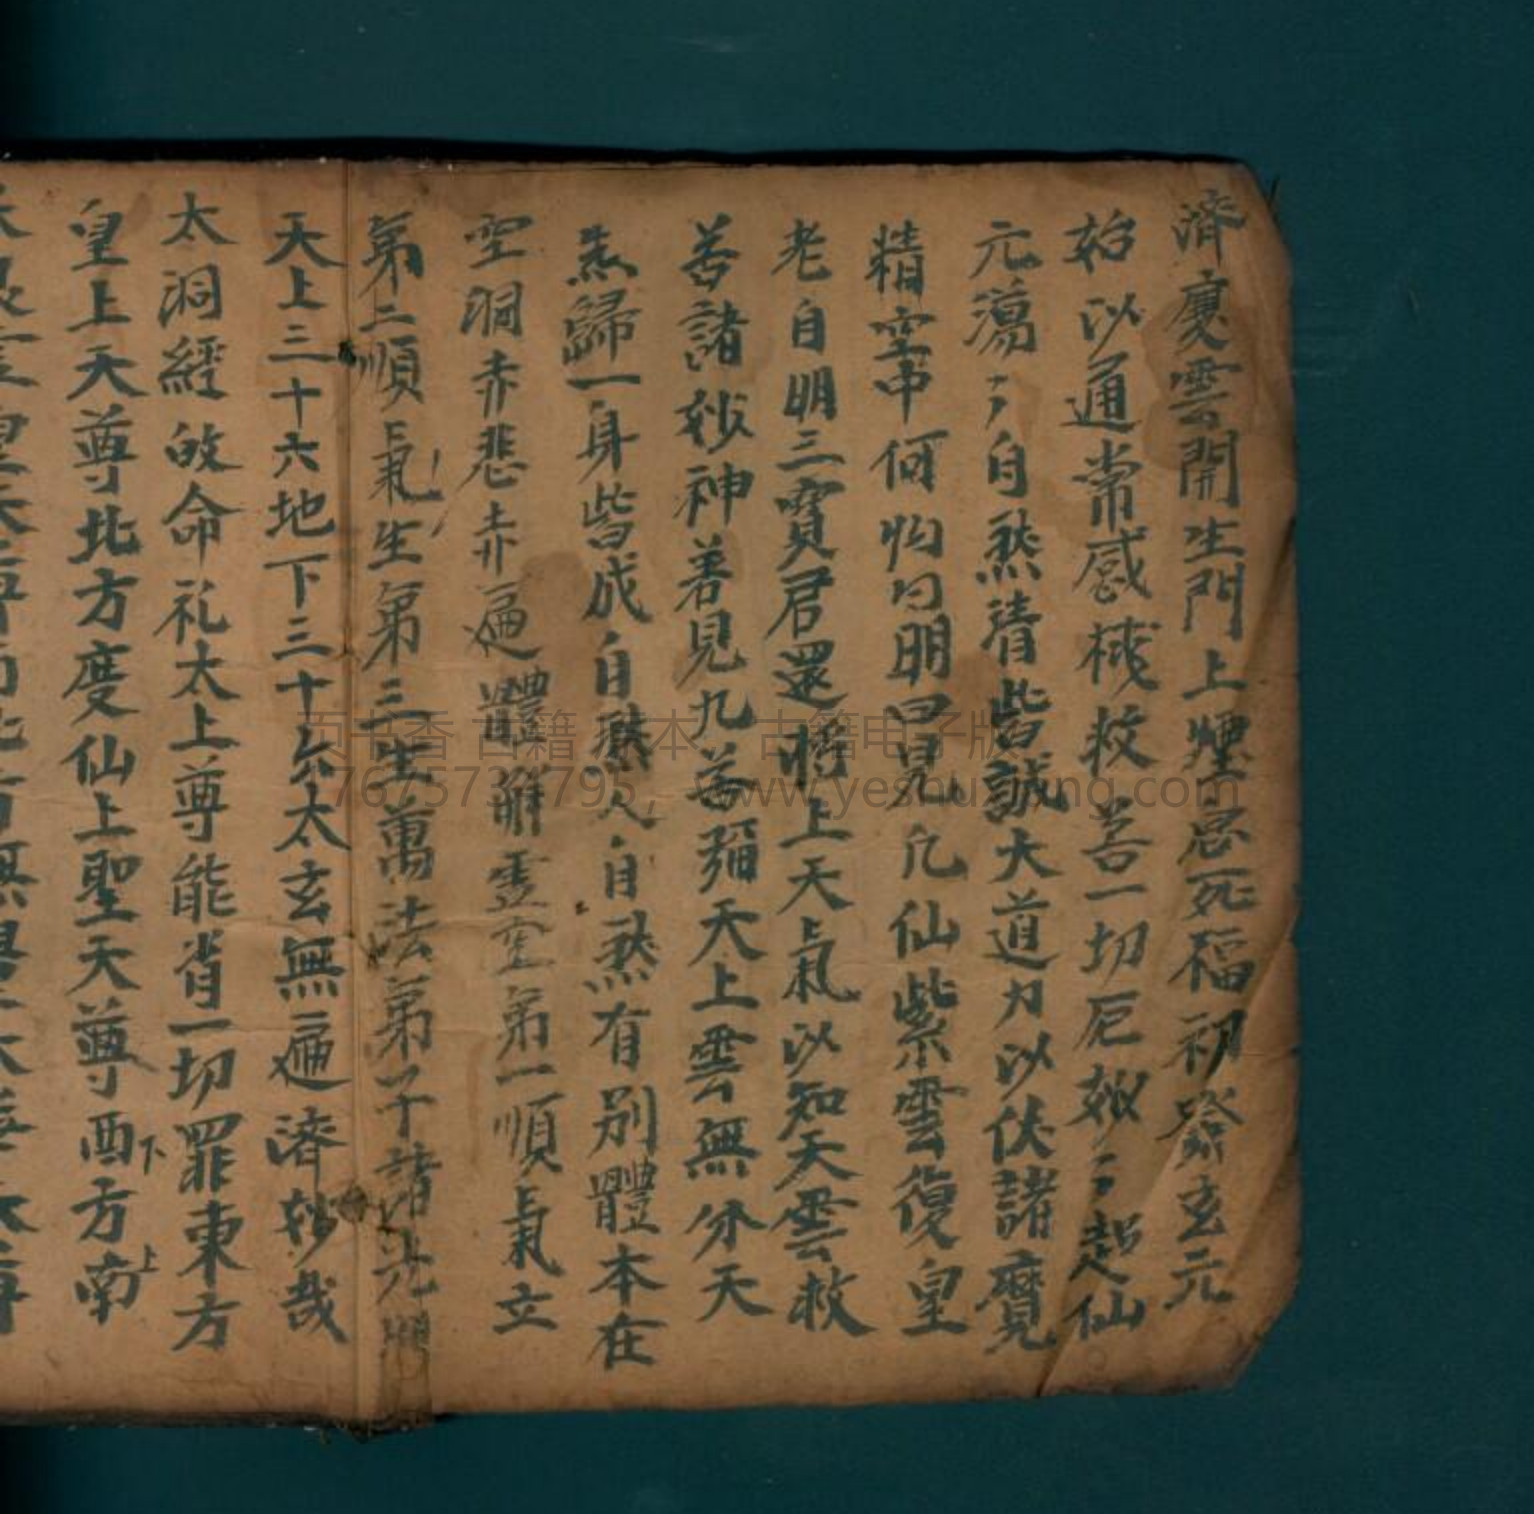 濟度雲開生門上煙忌死福初發玄元
始以通常感機救苦一切厄妙〻超仙
元蕩〻自然清皆誠大道力以伏諸魔
精空中何灼灼明曰見九仙紫雲復皇
老自明三寶君還將上天氣以知天雲救
苦諸妙神善見九善弥天上雲無分天
炁歸一身皆成自然人自然有別體本在
空洞赤悲赤遍體難灵空第一順氣立
第二順氣生第三生萬法弟子諸光
天上三十六地下三十六太玄無遍濟妙哉
太洞經啟命礼太上尊能省一切罪東方
皇上天尊北方度仙上聖天尊西下方南上
页书香古籍 本 古籍电子版
www.yeshuxiang.com